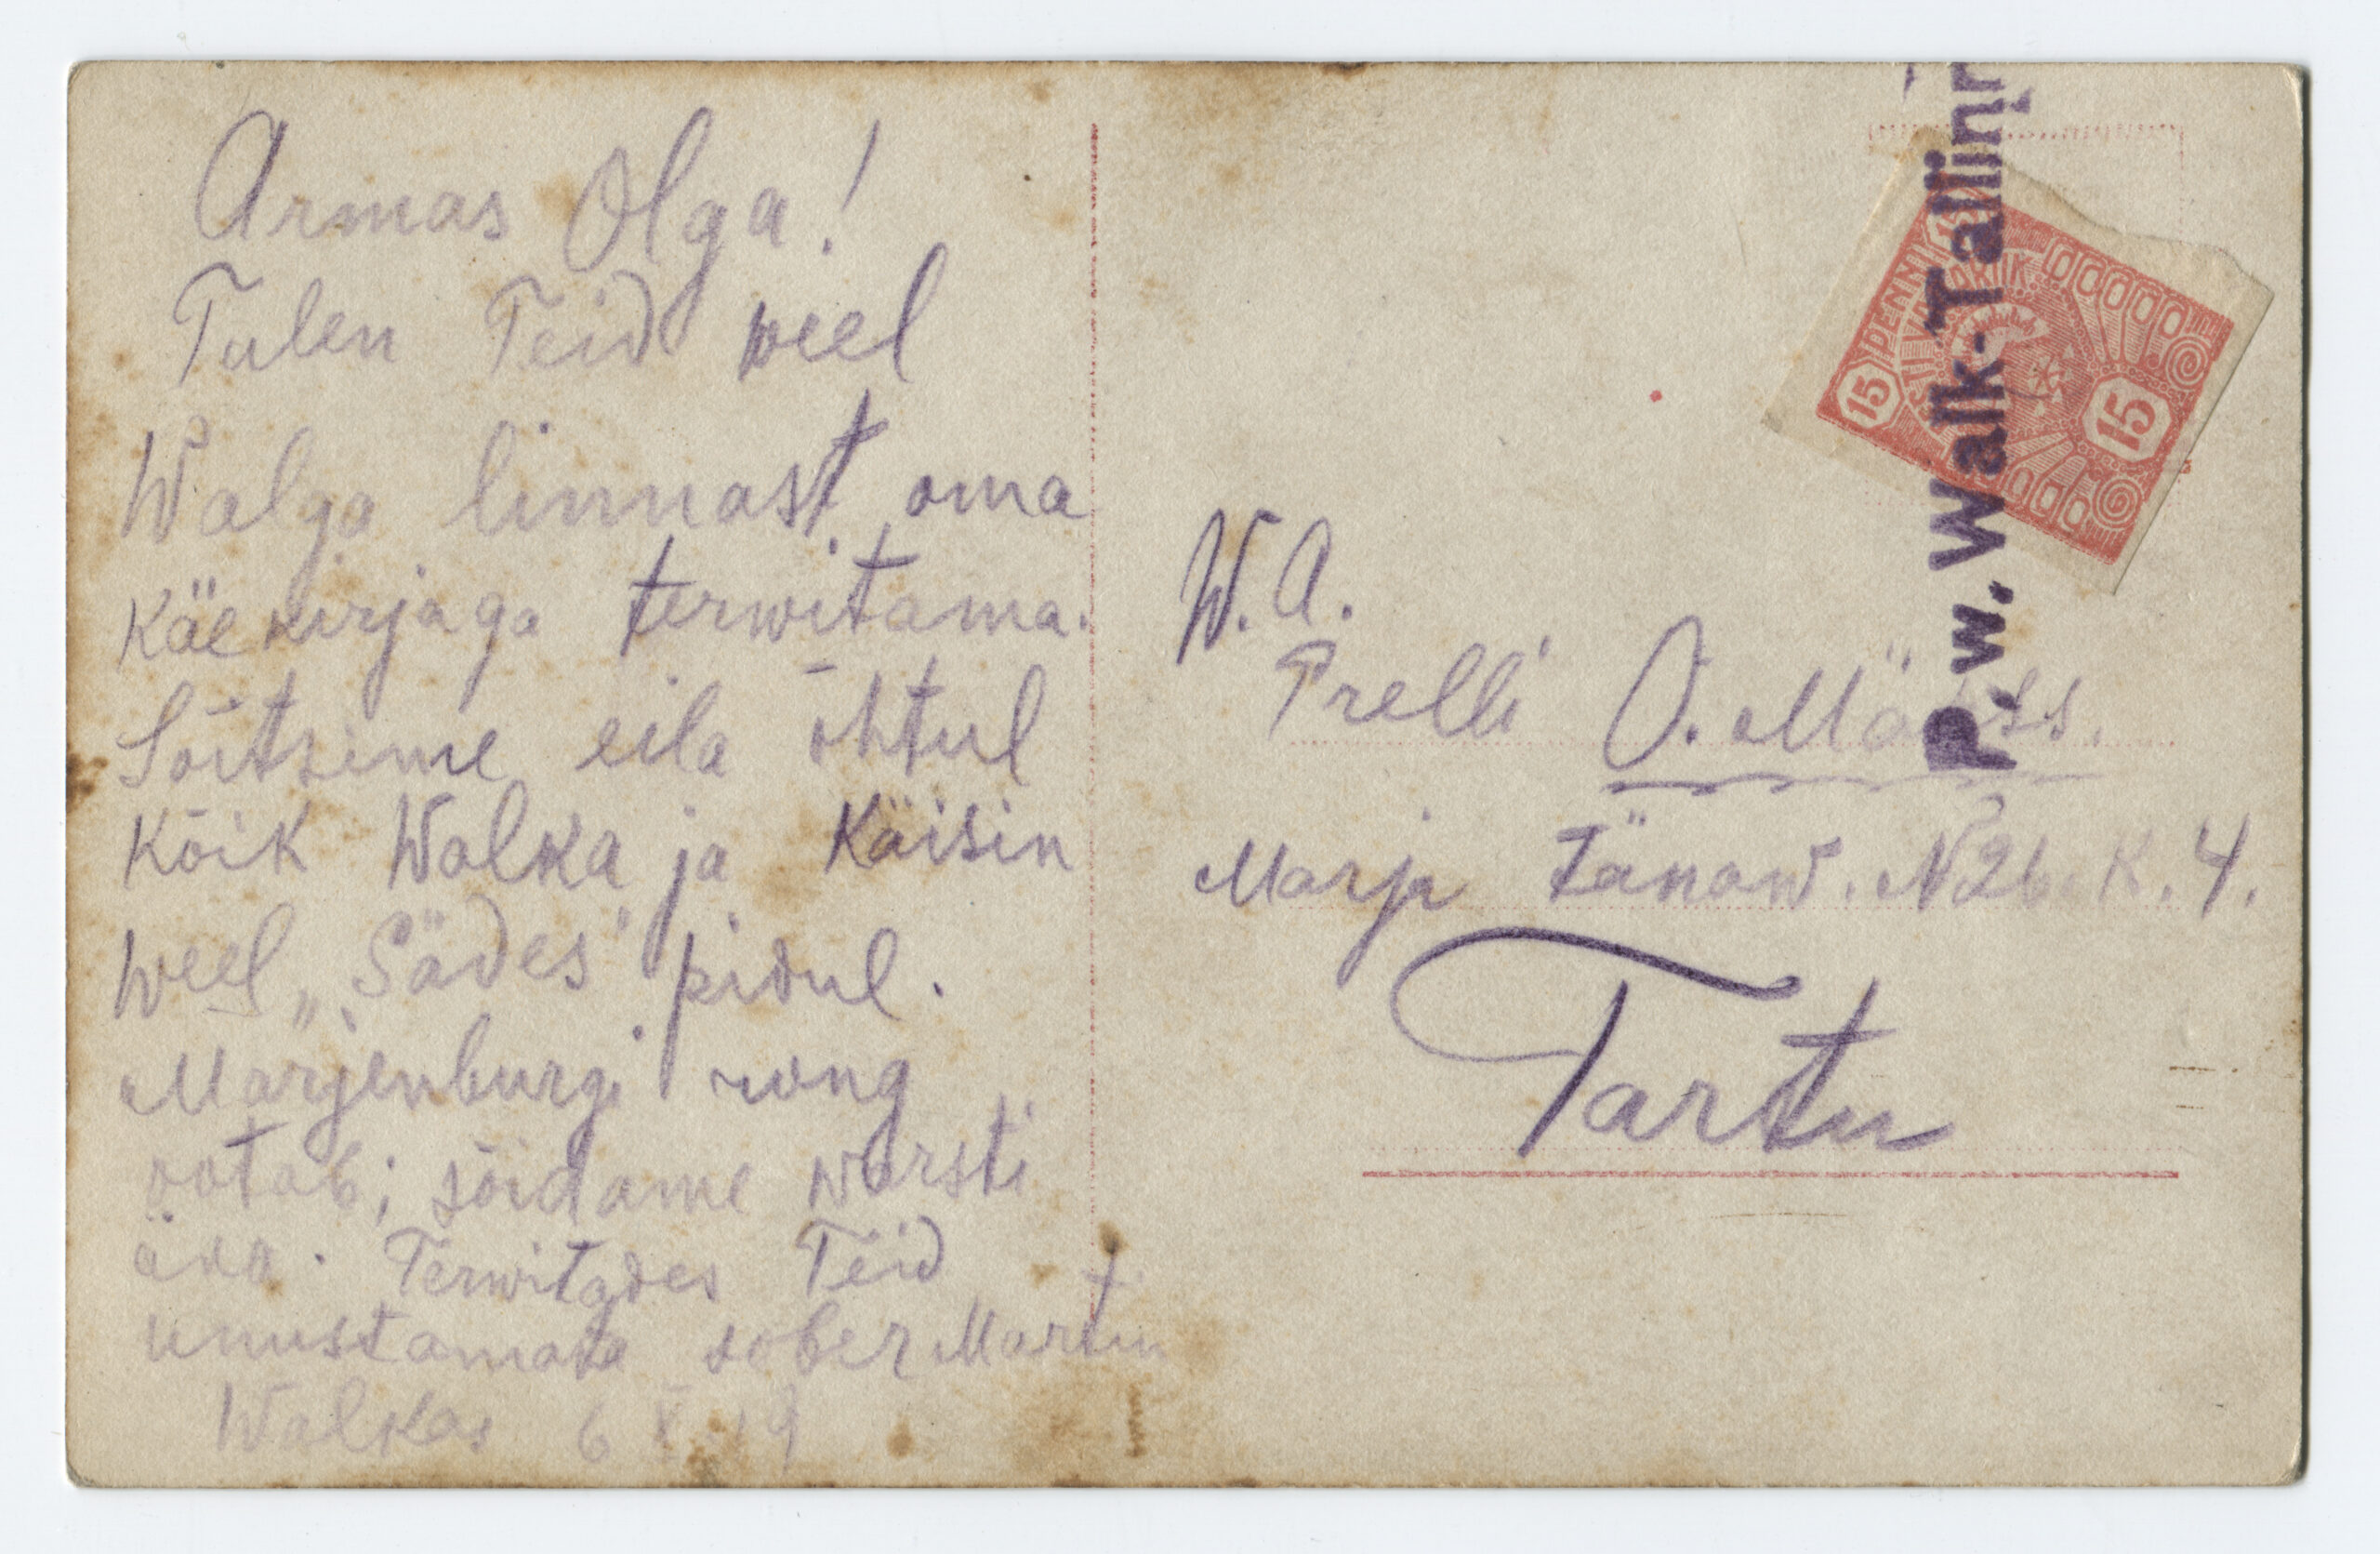 Armas Olga!
Tulen Teid weel
Walga linnast oma
Käekirjaga terwitama.
Sõitsime eila õhtul
Kõik Walka ja Käisin
weel „Sädes" pidul.
Marjenburgi rong
ootab; sõidame warsti
ära. Terwitades Teid
unustamata sõber Martin
Walkas 6 X 19
P.w. Walk-Tallinn
15 PENNI
15
W. A.
Prelli O. Mäss.
Marja tänaw. N 26. K. 4.
Tartu